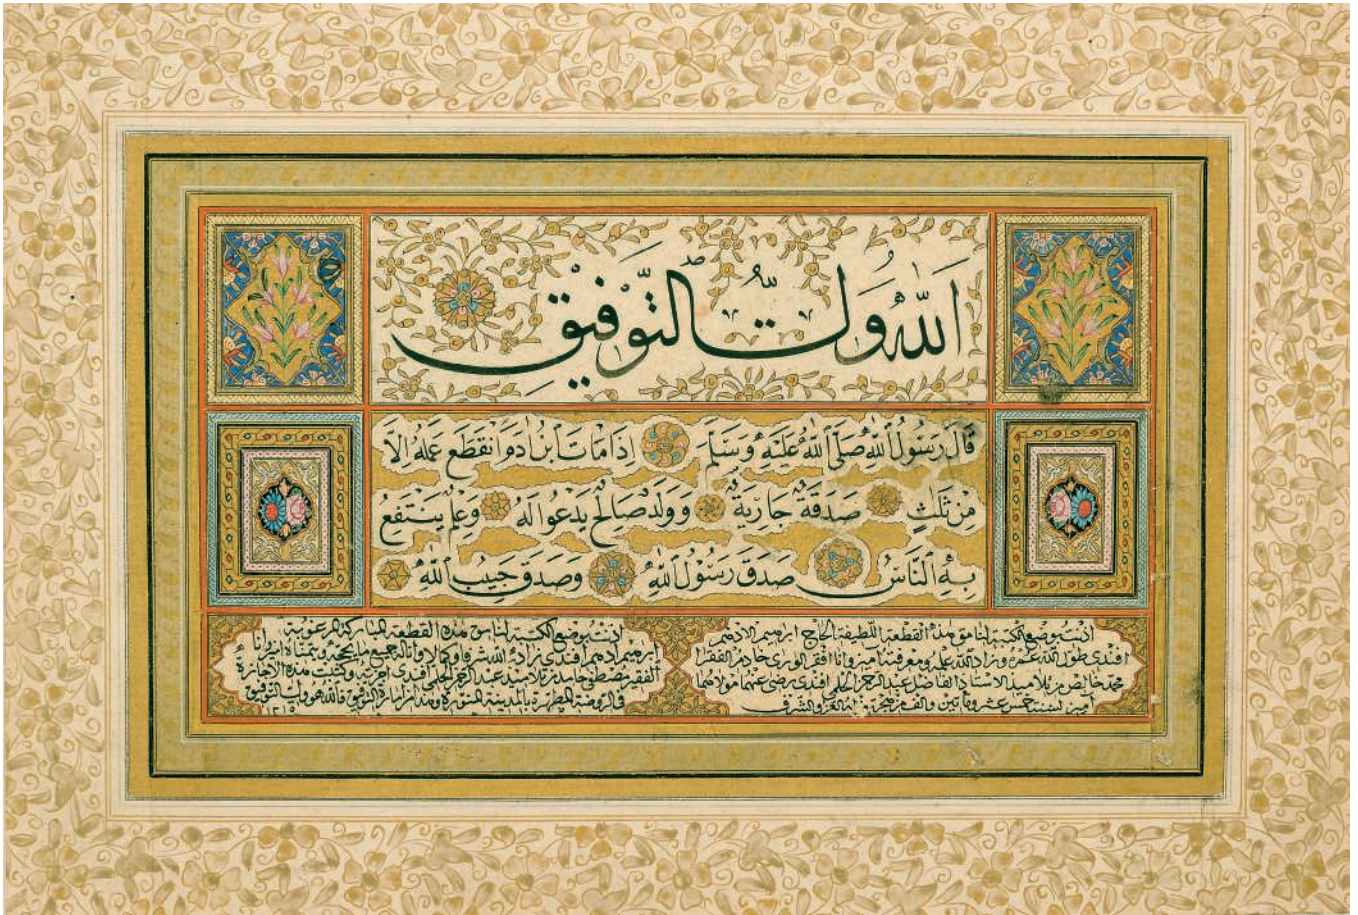 الله ولي التوفيق
قال رسول الله صلى الله عليه وسلم إذا مات ابن آدم انقطع عمله إلا
من ثلث صدقة جارية وولد صالح يدعوا له وعلم ينتفع
به الناس صدق رسول الله وصدق حبيب الله
اذنت بوضع الكتبة لنامق هذه القطعة اللطيفة الحاج ابرهيم الادهمي
افندى طول الله عمره وزاد الله علمه ومعرفته امين وانا افقر الورى خادم الفقرا
محمد خالص من تلاميذ الاستاد الفاضل عبد الرحمن الحلمي افندى رضى عنهما مولاهما
امين لسنة خمس عشر ومأتين والف من هجرة له العز والشرف
اذنت بوضع الكتبة لنامق هذه القطعة المباركة المرغوبة
ابرهيم ادهم افندى زاده الله شرفا وكمالا واناله جميع ما يحبه ويتمناه امين انا
الفقير مصطفى حامد من تلاميذ عبد الرحمن الحلمي افندى وكتبت هذه الاجازة
فى الروضة المطهرة بالمدينة المنورة التوفيق فالله هو ولى التوفيق
١٢١٥